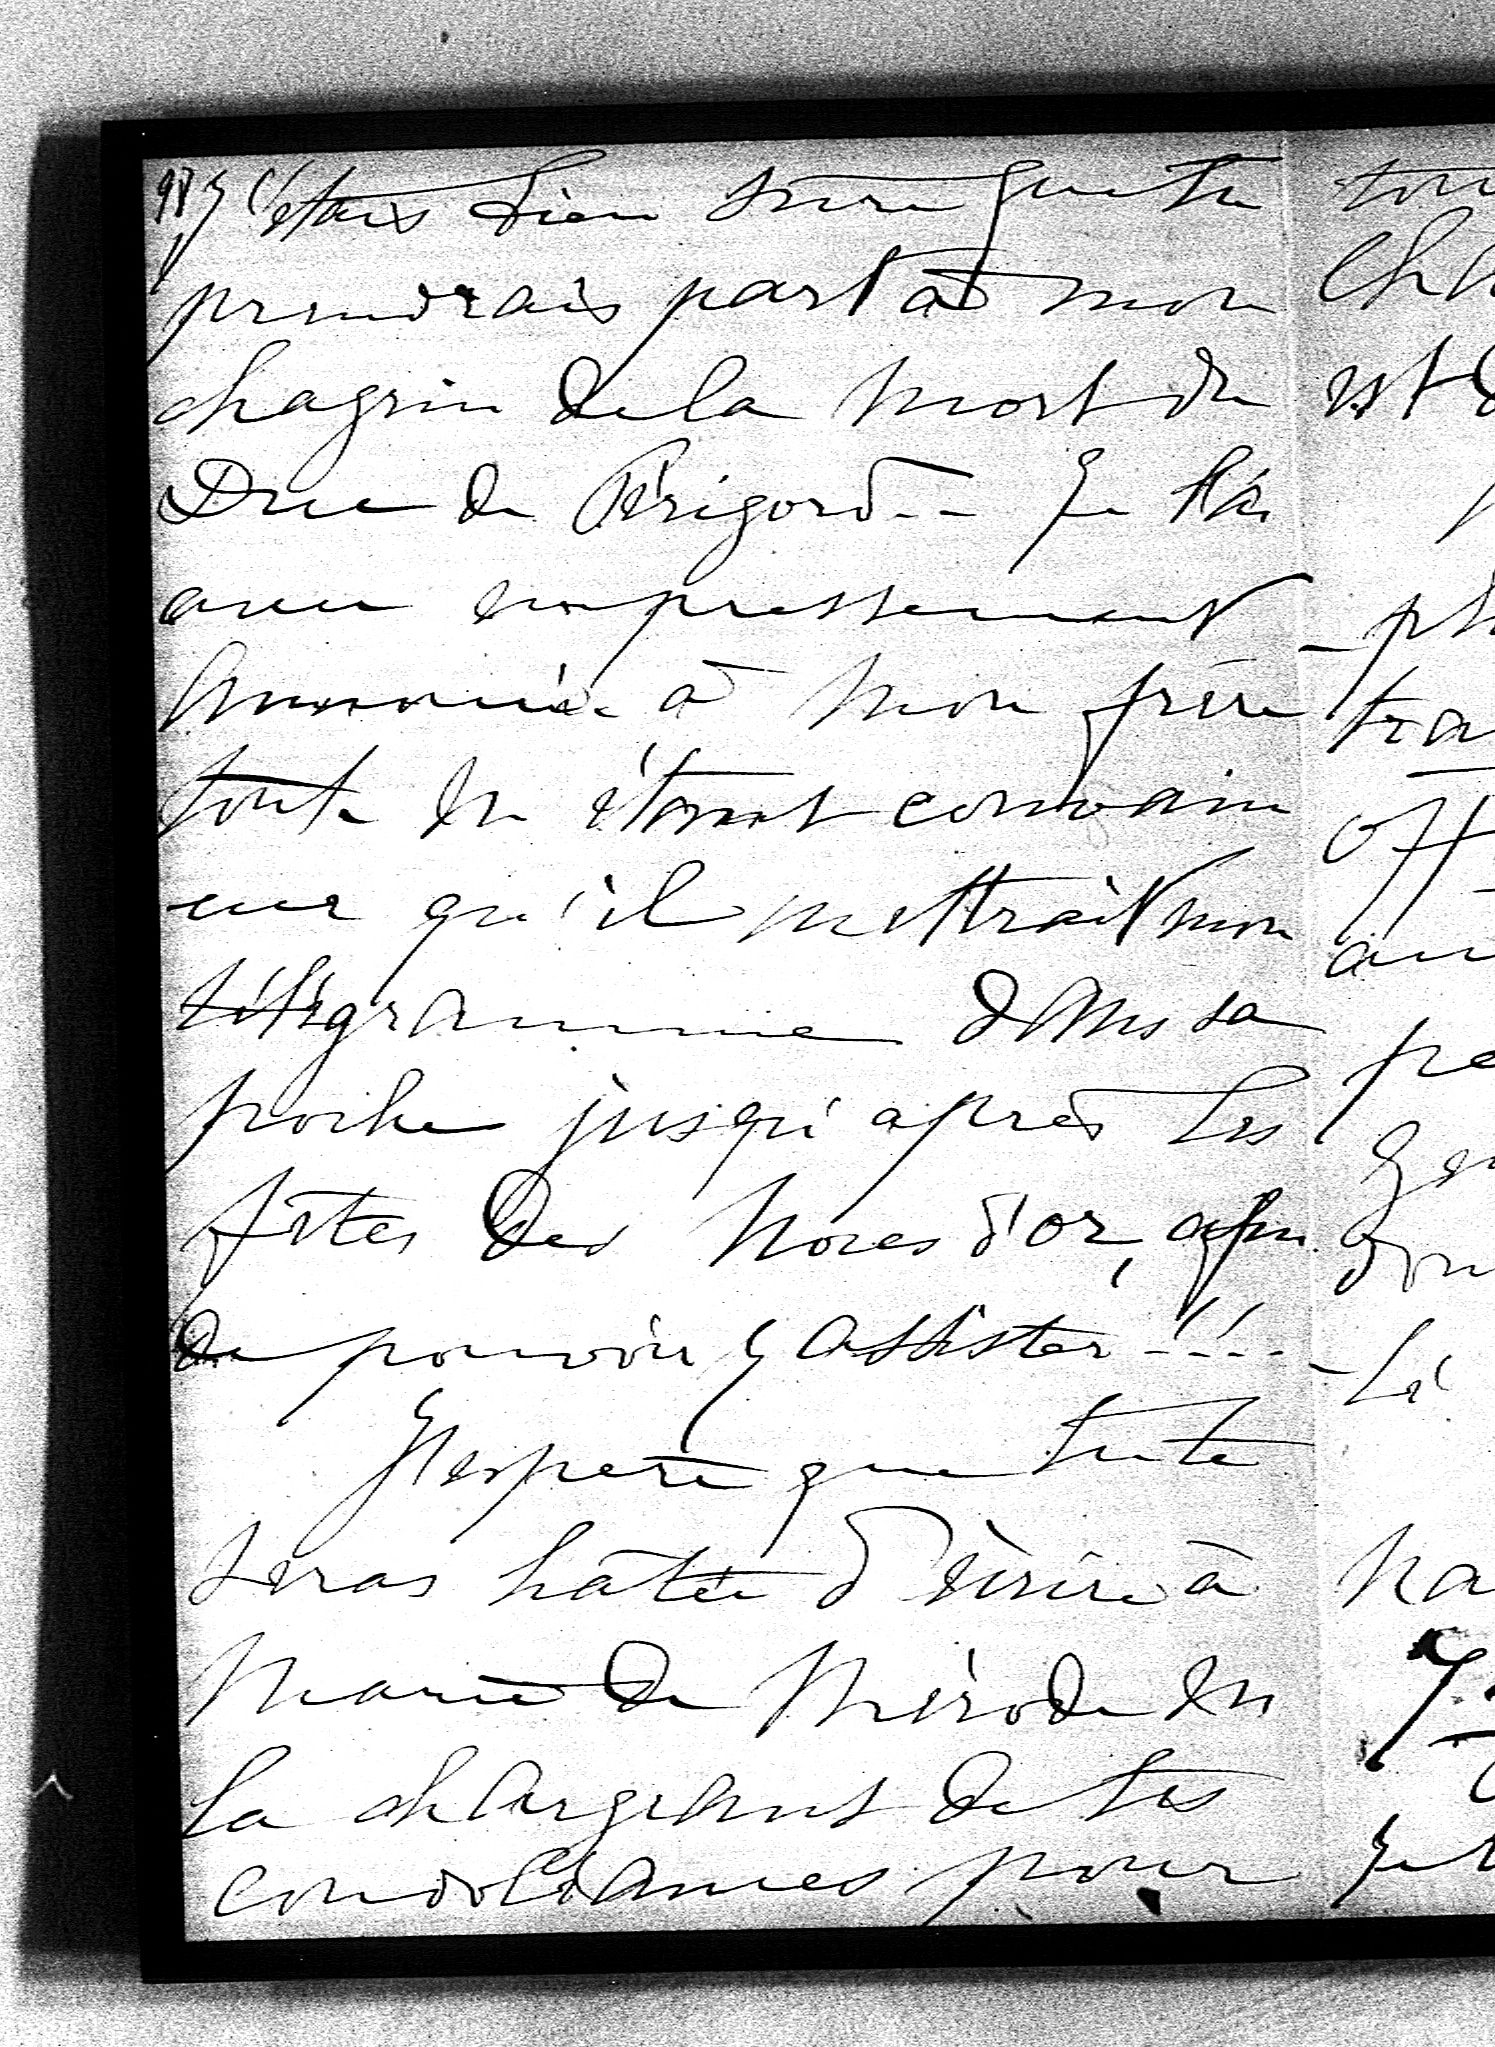 98) J'étais bien sûre que tu
prendrais part à mon
chagrin de la mort du
Duc de Périgord.-- Je l'ai
avec empressement
annoncée à mon frère
toute en étant convain
cue qu'il mettrait mon
télégramme dans sa
poche jusqu'après les
fêtes des Noces d'or, afin
de pouvoir y assister!!!..
J'espère que tu te
seras hâtée d'écrire à
Marie de Mérode en
la chargeant de tes
condoléances pour
est
Na